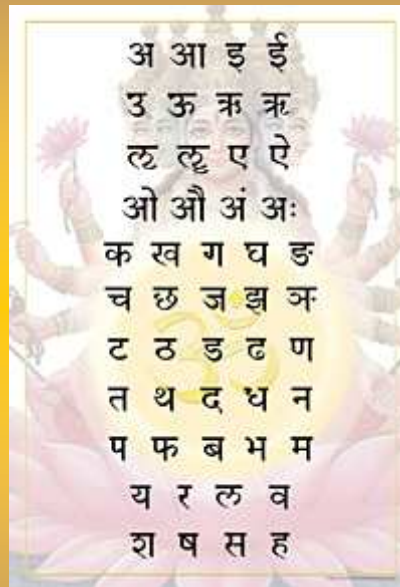 अ आ इ ई
उ ऊ ऋ ॠ
ऌ ॡ ए ऐ
ओ औ अं अः
क ख ग घ ङ
च छ ज झ ञ
ट ठ ड ढ ण
त थ द ध न
प फ ब भ म
य र ल व
श ष स ह
ॐ